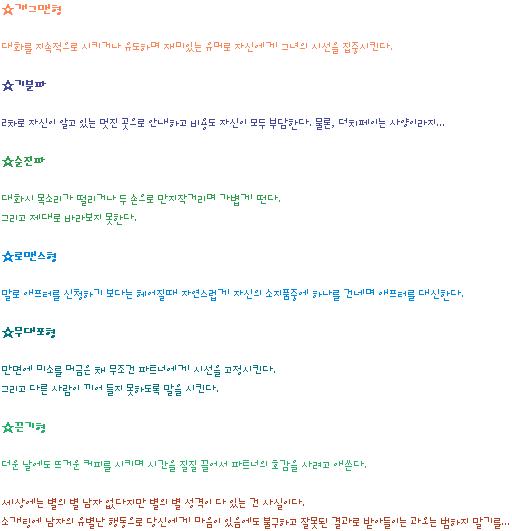 ☆개그맨형
대화를 지속적으로 시키거나 유도하면 재미있는 유머로 자신에게 그녀의 시선을 집중시킨다.
☆기분파
2차로 자신이 알고 있는 멋진 곳으로 안내하고 비용도 자신이 모두 부담한다. 물론, 더치페이는 사양이라지...
☆순진파
대화시 목소리가 떨리거나 두 손으로 만지작거리며 가볍게 떤다.
그리고 제대로 바라보지 못한다.
☆로맨스형
말로 애프터를 신청하기 보다는 헤어질때 자연스럽게 자신의 소지품중에 하나를 건네며 애프터를 대신한다.
☆무대포형
만면에 미소를 머금은 채 무조건 파트너에게 시선을 고정시킨다.
그리고 다른 사람이 끼어 들지 못하도록 말을 시킨다.
☆끈기형
더운 날에도 뜨거운 커피를 시키며 시간을 질질 끌어서 파트너의 호감을 사려고 애쓴다.
세상에는 별의 별 남자 없다지만 별의 별 성격이 다 있는 건 사실이다.
소개팅에 남자의 유별난 행동으로 당신에게 마음이 있음에도 불구하고 잘못된 결과로 받아들이는 과오는 범하지 말기를...